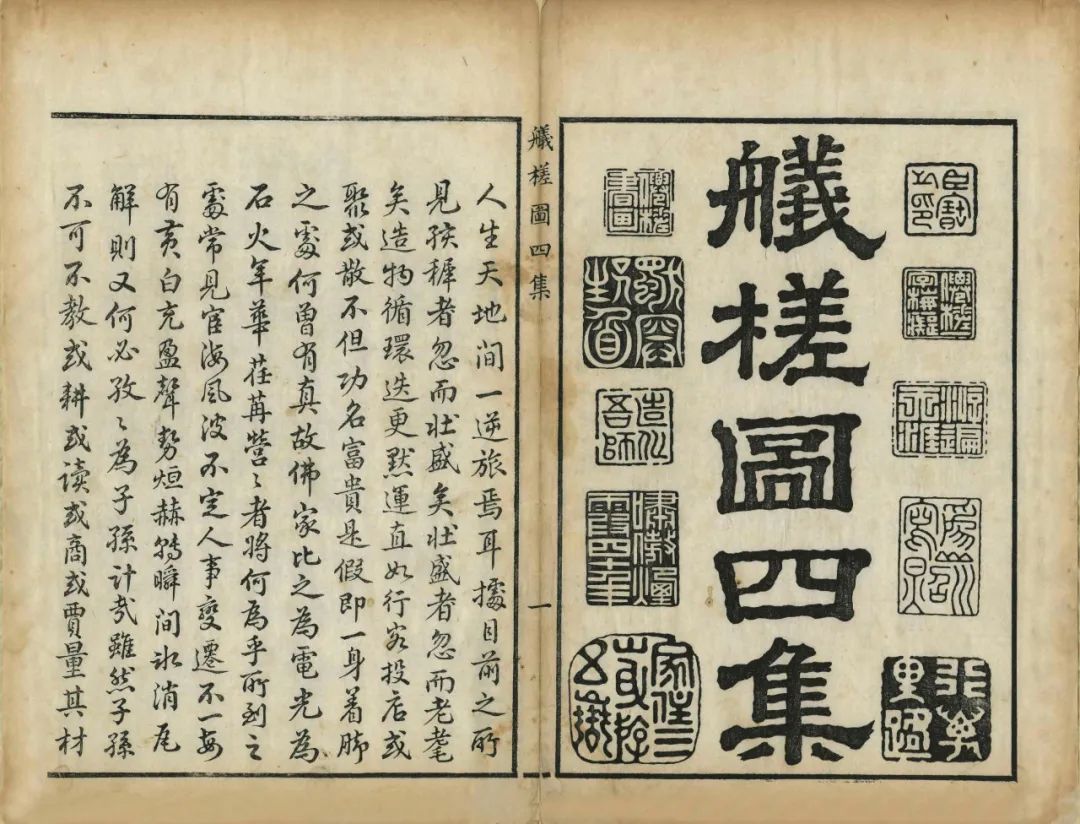 行萬里路
艤槎圖四集
造化吾師
嘯傲煙霞四十年
艤槎圖四集
一
人生天地间一逆旅焉耳據目前之所
見孩穉者忽而壯盛矣壯盛者忽而老耄
矣造物循環迭更默運直如行客投店或
聚或散不但功名富貴是假即一身着脚
之處何曾有真故佛家比之為電光為
石火年華荏苒營〻者將何為乎所到之
處常見宦海風波不定人事變遷不一每
有黄白充盈聲勢烜赫轉瞬间冰消瓦
解則又何必孜〻為子孫計哉雖然子孫
不可不教或耕或读或商或賈量其材